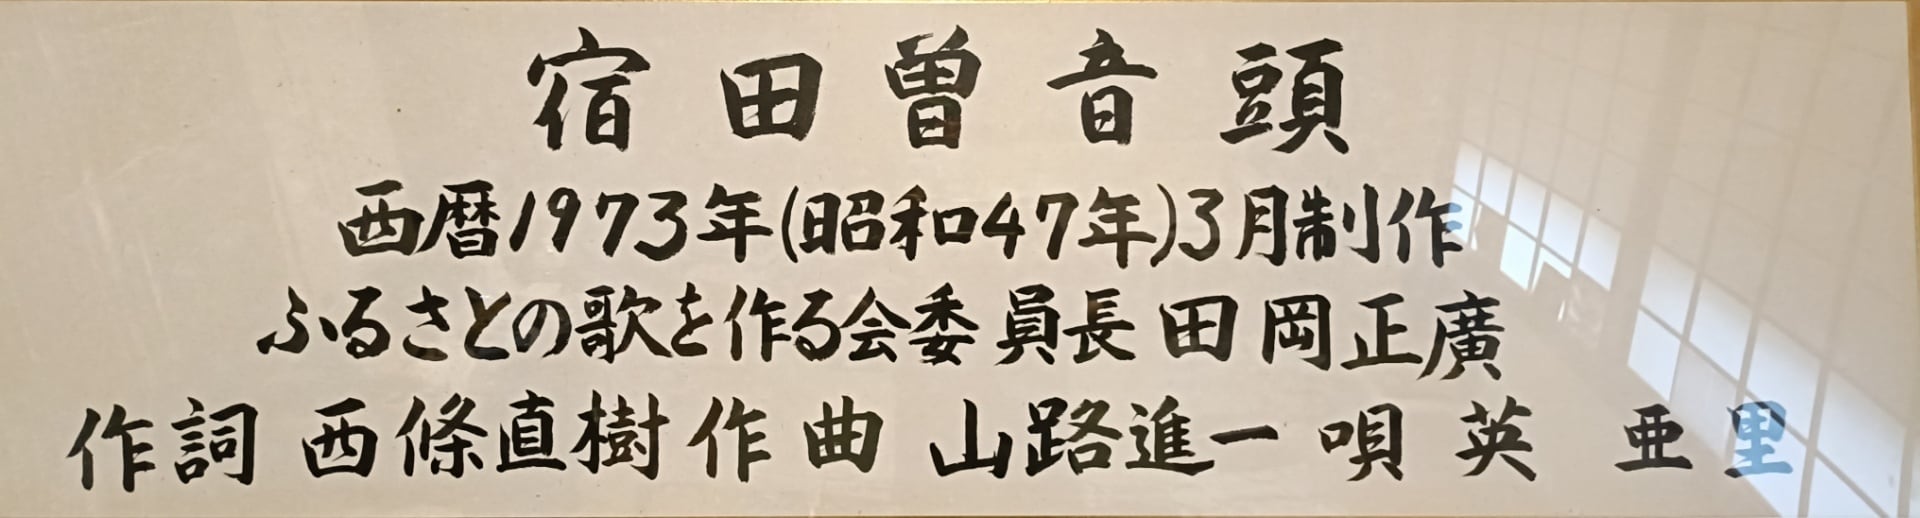 宿田曽音頭
西暦1973年(昭和47年)3月制作
ふるさとの歌を作る会委員長 田岡正廣
作詞 西條直樹 作曲 山路進一 唄 英 亜里